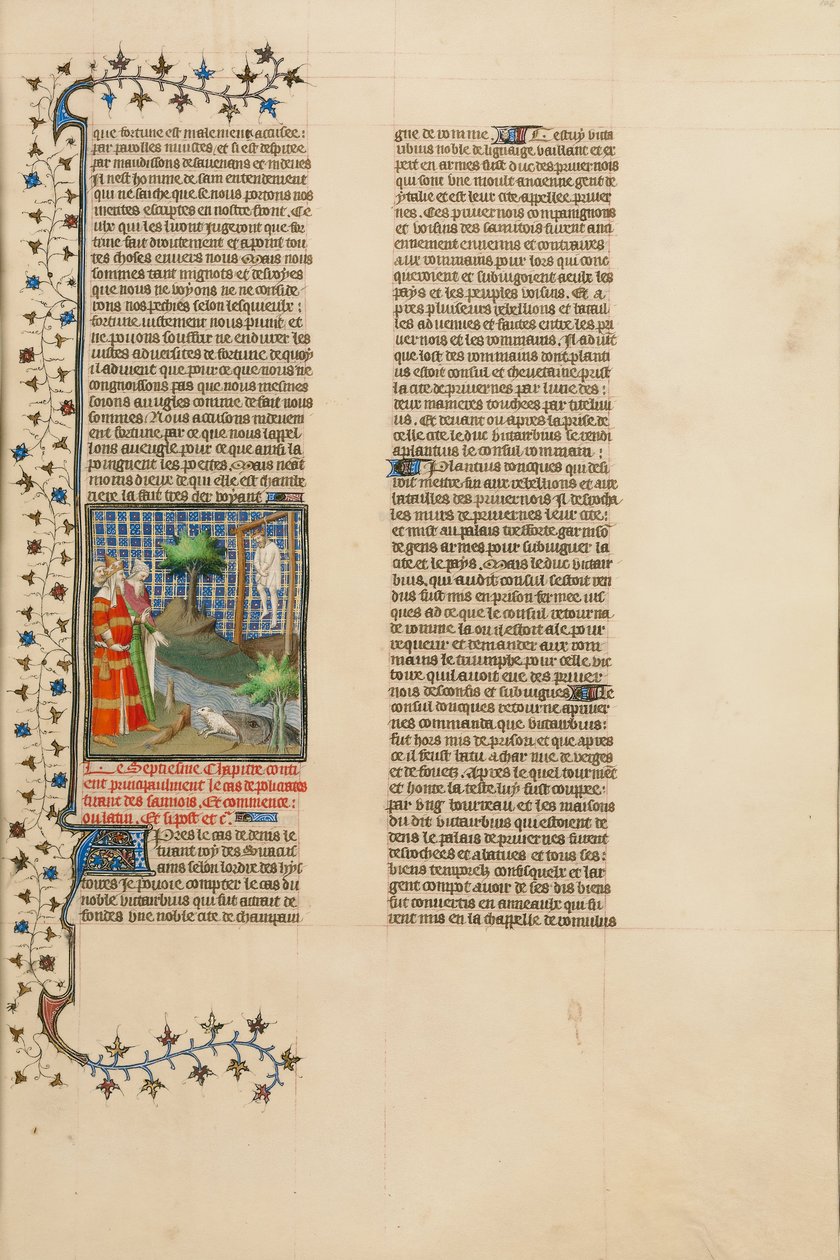 que fortune est malement accusee:
par parolles iniustes, et si est despitee
par maudissons desauenans et indeues
Il nest homme de sain entendement
qui ne saiche que se nous portons nos
mentes escriptes en nostre front. Ce
ulx qui les liront Jugeront que for
tune fait droitement et apoint tou
tes choses enuers nous Mais nous
sommes tant mignots et desuoyes
que nous ne voyons ne ne conside
rons nos pechies selon lesquieulx:
fortune iustement nous punit et
ne pouons souffrir ne endurer les
iustes aduersites de fortune de quoy
il aduient que pour ce que nous ne
congnoissons pas que nous mesmes
soions aueugles comme de fait nous
sommes Nous accusons indeuem
ent fortune par ce que nous lappel
lons aueugle pour ce que ainsi la
poingnent les poettes. Mais neant
moins dieux de qui elle est chambe
riere la fait tres cler voyant
Le Septiesme Chapitre conti
ent principaulment le cas de policrates
tirant des samois. Et commence:
ou latin. Et si post et c.
Apres le cas de denis le
tirant roy des Siracus
ains selon lordre des hys
toires Je pouoie compter le cas du
noble victaribius qui fut attrait de
fondes vne noble cite de champain
gne de romme. Cestuy victa
ribius noble de liguaige vaillant et ex
pert en armes fust duc des priuernois
qui sont vne moult ancienne gent de
ytalie et est leur cite appellee priuer
nes. Ces priuernois compaingnons
et voisins des samitois furent anci
ennement ennemis et contraires
aux rommains pour lors qui conc
queroient et subiugoient a eulx les
pays et les peuples voisins. Et a
pres pluseurs rebellions et batail
les aduenues et faites entre les pri
uernois et les rommains. Il aduint
que lost des rommains dont planti
us estoit consul et cheuetaine prist
la cite de priuernes par lune des:
deux manieres touchees par titeliui
us. Et deuant ou apres la prise de
celle cite le duc victaribius se rendi
a plantius le consul rommain:
Plantius doncques qui desi
roit mettre fin aux rebellions et aux
batailles des priuernois Il despoicha
les murs de priuernes leur cite:
et mist au palais tresforte garnison
de gens armes pour subiuguer la
cite et le pays. Mais le duc victari
bius, qui audit consul sestoit ren
dus fust mis en prison fermee ius
ques ad ce que le consul retourna
de romme la ou il estoit ale pour
requerir et demander aux rom
mains le triumphe pour celle vic
toire quil auoit eue des priuer
nois desconfis et subiugues Le
consul doncques retourne a priuer
nes commanda que victaribius:
fut hors mis de prison et que apres
ce il feust batu a char nue de verges
et de fouetz. Apres le quel tourment
et honte la teste luy fust couppee:
par vng bourreau et les maisons
du dit victaribius qui estoient de
dens le palais de priuernes furent
despoichees et abatues et tous ses:
biens temporelz confisquelx et lar
gent compot auoir de ses dis biens
fut conuertis en anneaulx qui fu
rent mis en la chappelle de romulus